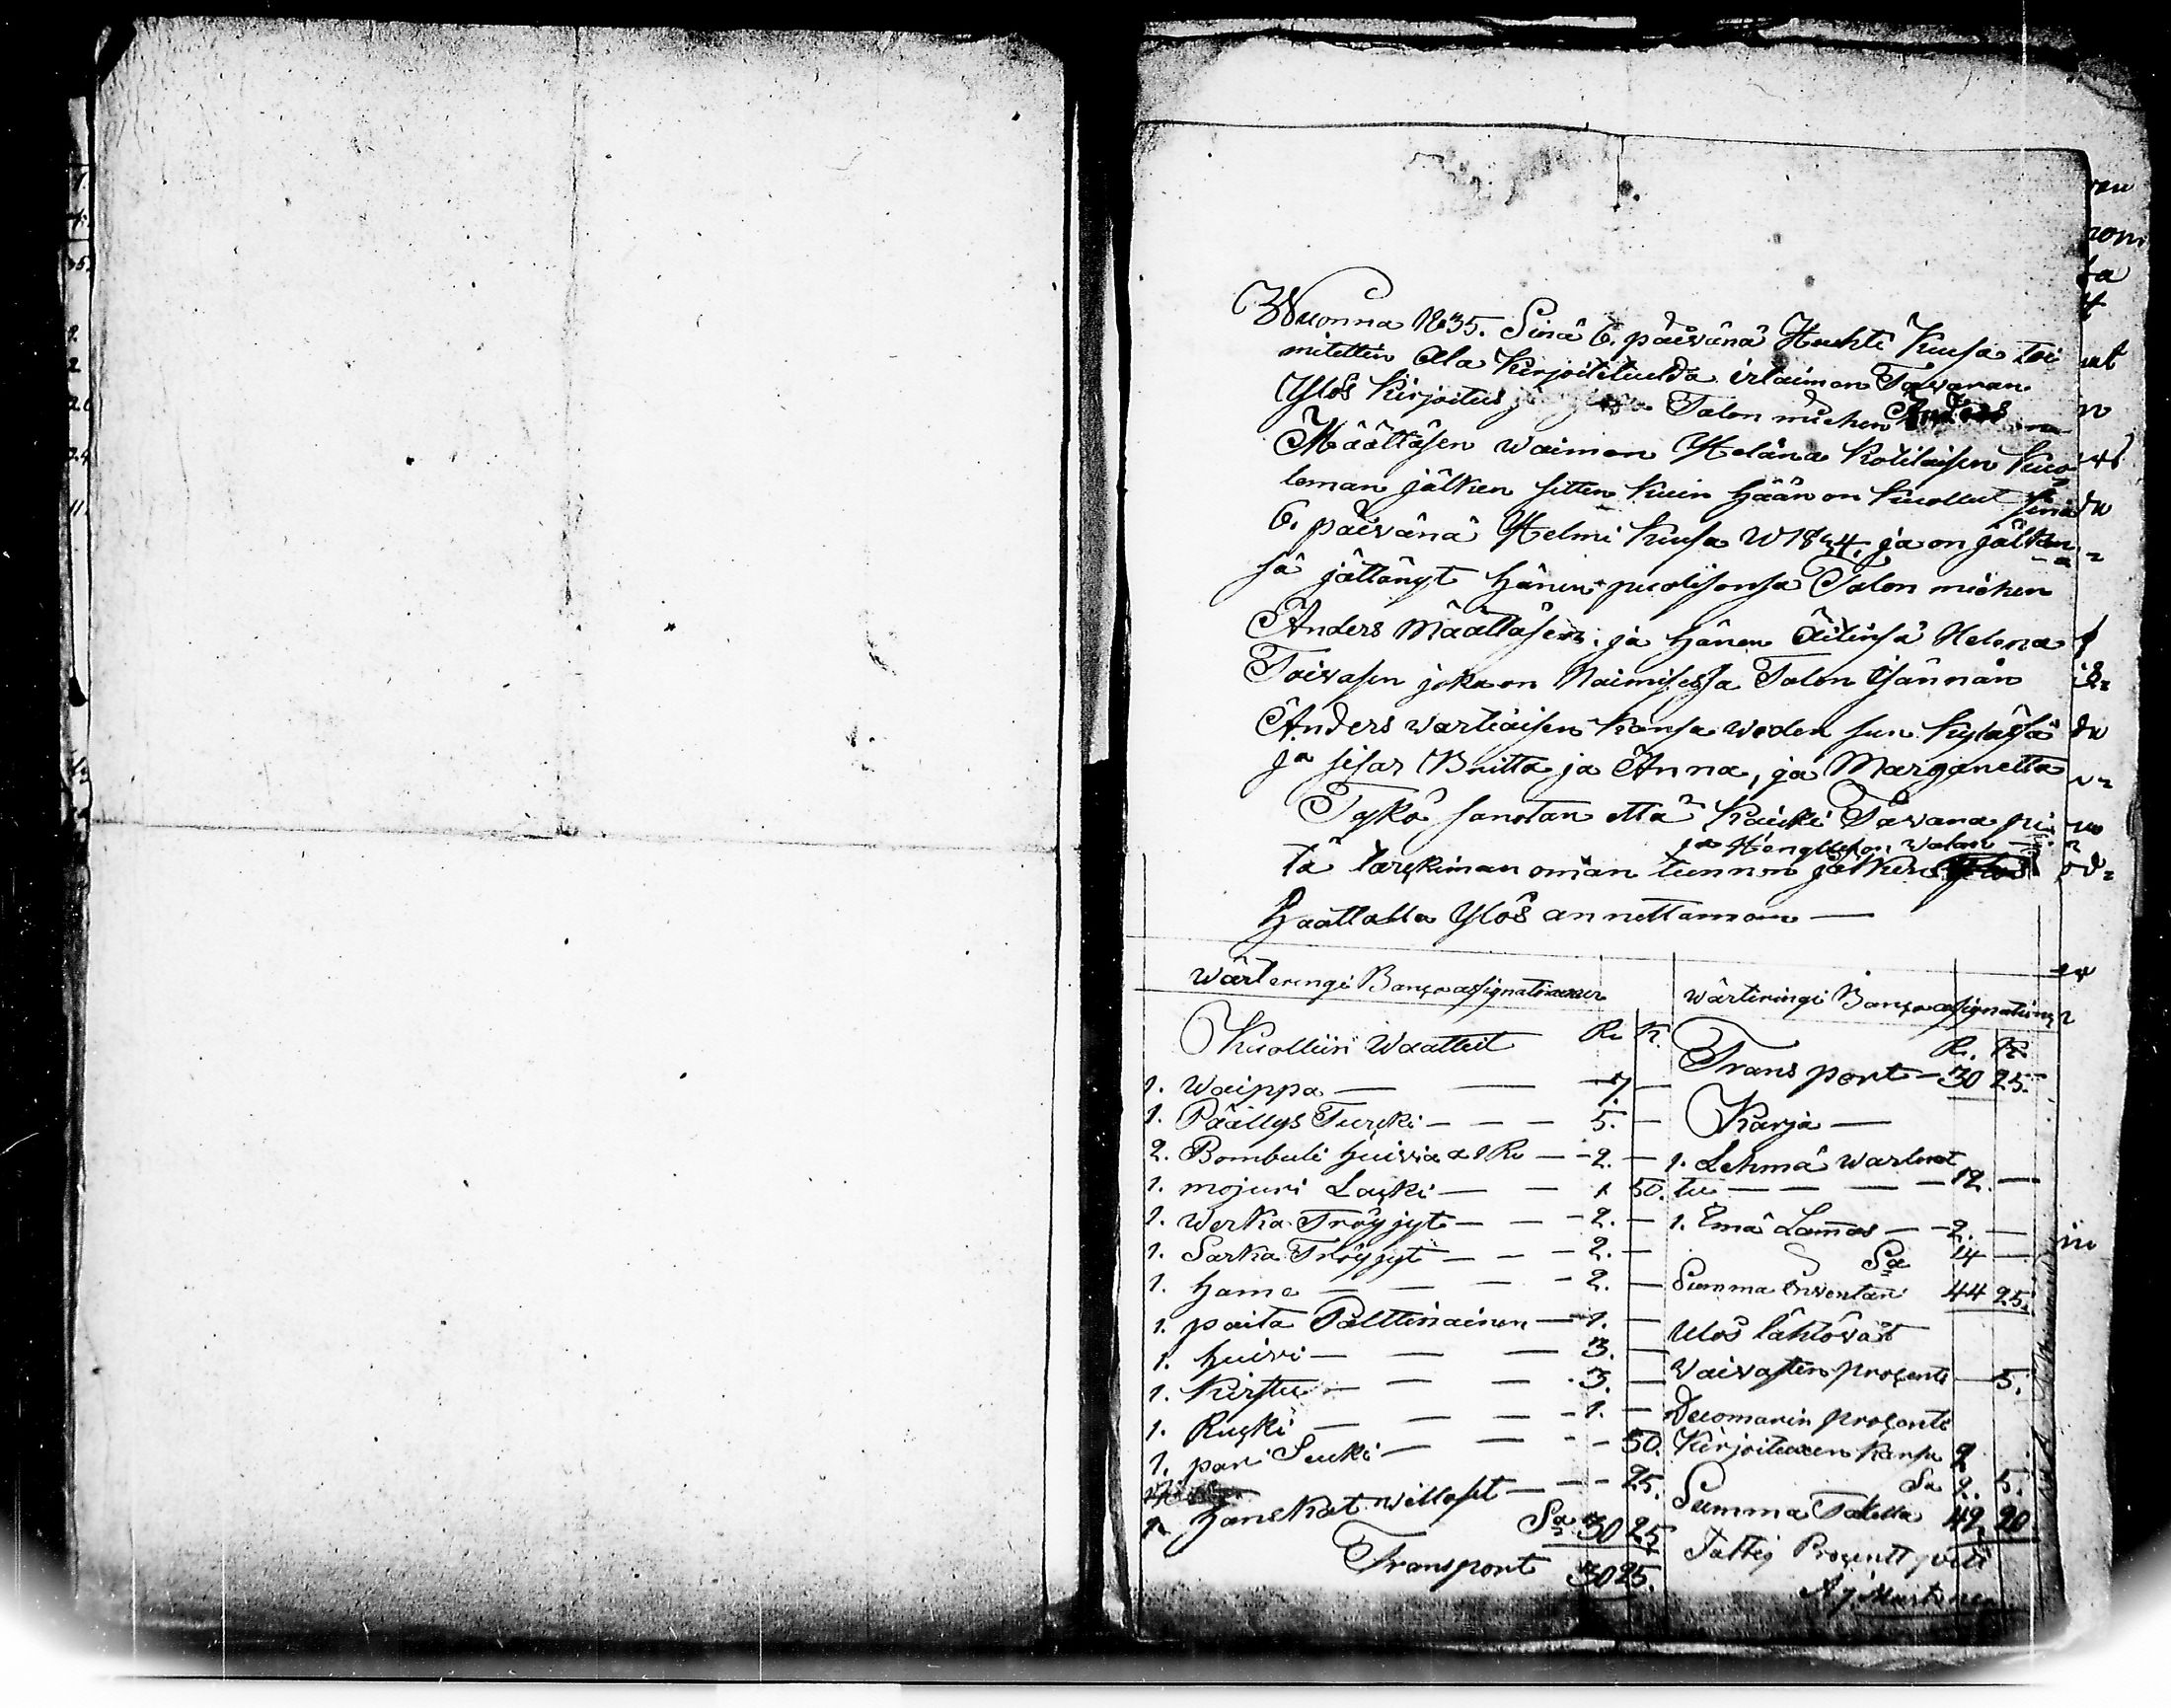 Wuonna 1835. Sinä 6. päivänä Huhti Kuusa toi
mitettin Ala Kirjoitetulda irtaimen Tavaran
Ylös Kirjoitus Talon miehen Anders
Määttäsen waimon Heläna Kotilaisen Kuo
leman jälken sitten kuin hään on kuollut sinä
6. päivänä Helmi Kuusa W 1834. ja on jälken
sä jättänyt hänen puolisonsa Talon miehen
Anders Määttäsen. ja hänen Äitinsä Helena
Toivasen joka on Naimisessa Talon isännän
Anders wartiaisen kansa weden sun kylässä
ja sisar Britta ja Anna, ja Margaretta
Tykö sanotan että Kaicki Tavara pi
ja Hengellisen Walan
tä tarckiman oman tunnon jälken
haattalla Ylös annettaman —
Wärteringi Banco assignationer
Kuolliin Waattet R. K.
1. Waippa — — 7. —
1. Päällys Turcki — — — 5. —
2. Bombuli huivia a 1 Ru — 2. —
1. mojuri Lacki — — 1 50.
1. Werka Tröyjyt — — 2. —
1. Sarka Tröyjyt — — — 2. —
1. hame — — — 2. —
1. paita Palttinainen — 1. —
1. huivi — — — 3. —
1. Kirstu — — — 3. —
1. Rucki — — — 1. —
1. pari Sucki — — — 50.
1 hanskat willaset — — — 25.
Sa 30 25
Transport 30 25.
Wärteringi Banco assignationer
R. K.
Transport — 30 25.
Karja —
1. Lehmä warteerat
tu — — — — 12. —
1. Emä Lamas — — 2. —
Sa 14 —
Summa Inventari 44 25.
Ulos lähtövät
Vaivasten procenti — 5.
Duomarin procenti
Kirjoituxen kansa 2
Sa 2. 5.
Summa Talella 42. 20
Fattig Procentt qvitt